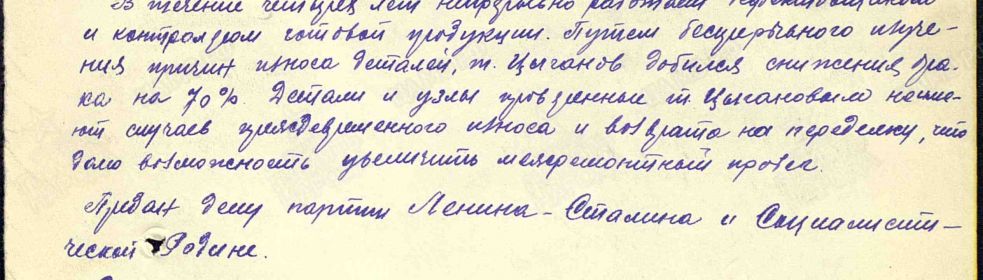 В течение четырёх лет непрерывно работает
и контролером готовой продукции. Путем бесцерычного изуче-
ния причин износа деталей, т. Цыганов добился снижения бра-
ка на 70%. Детали и узлы проведенные т. Цыгановым не име-
ют случаев преждевременного износа и возврата на переделку, что
дало возможность увеличить межремонтный пробег.
Предан делу партии Ленина-Сталина и Социалисти-
ческой Родине.